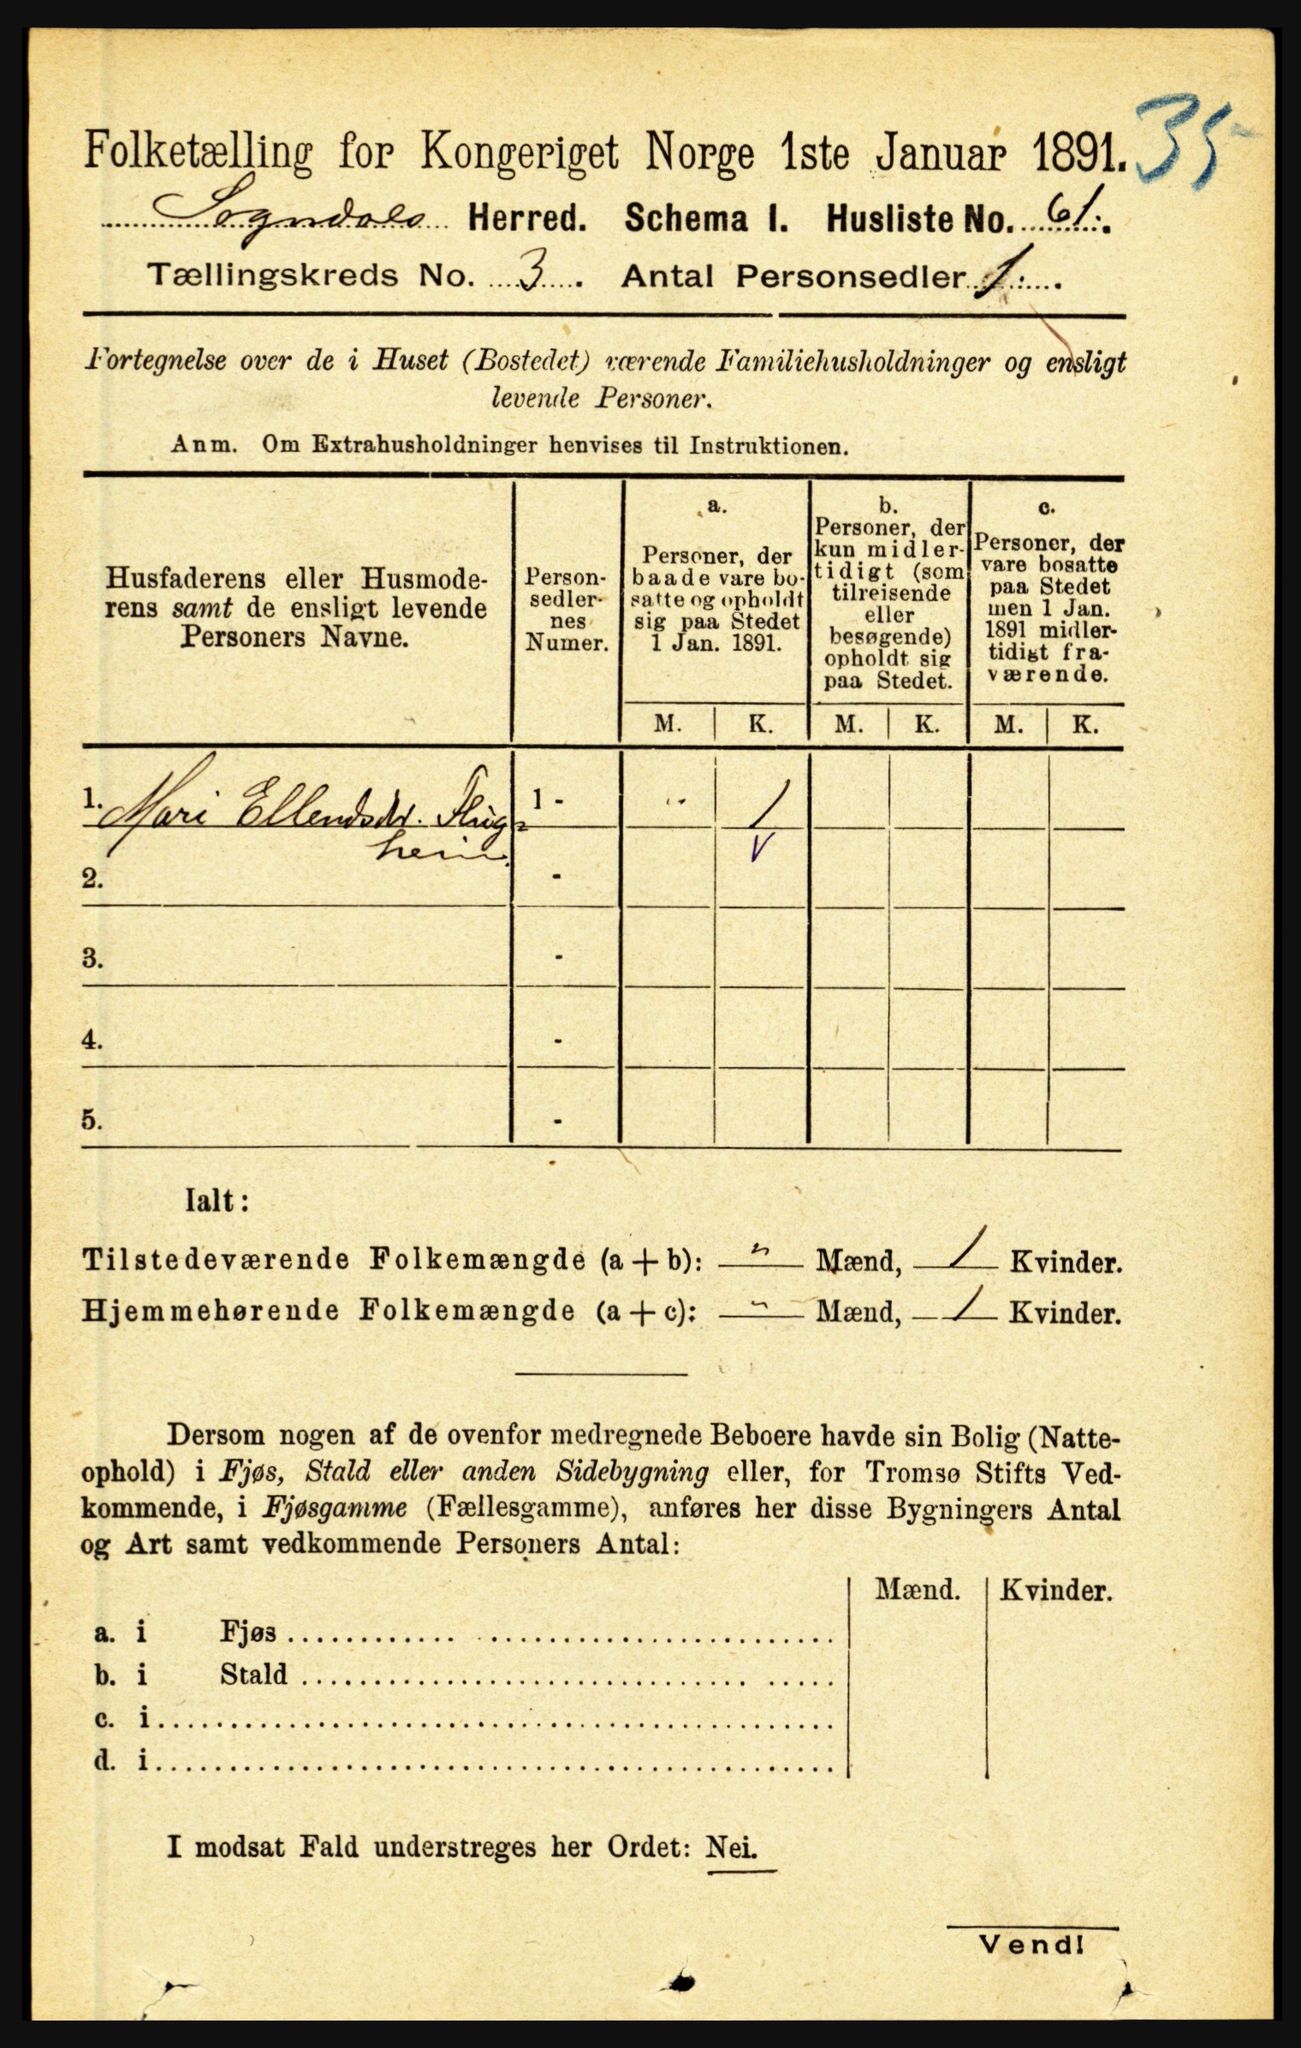 35
Folketælling for Kongeriget Norge 1ste Januar 1891.
Sogndals Herred. Schema I. Husliste No. 61.
Tællingskreds No. 3. Antal Personsedler 1.
Fortegnelse over de i Huset (Bostedet) værende Familiehusholdninger og ensligt
levende Personer.
Anm. Om Extrahusholdninger henvises til Instruktionen.
Husfaderens eller Husmode-
rens samt de ensligt levende
Personers Navne.
Person-
sedler-
nes
Numer.
a.
Personer, der
baade vare bo-
satte og opholdt
sig paa Stedet
1 Jan. 1891.
b.
Personer, der
kun midler-
tidigt (som
tilreisende
eller
besøgende)
opholdt sig
paa Stedet.
c.
Personer, der
vare bosatte
paa Stedet
men 1 Jan.
1891 midler-
tidigt fra-
værende.
M. K. M. K. M. K.
1. Mari Ellendsdtr. Flug= 1 - " 1
heim.
2. -
3. -
4. -
5. -
Ialt:
Tilstedeværende Folkemængde (a + b): " Mænd, 1 Kvinder.
Hjemmehørende Folkemængde (a + c): " Mænd, 1 Kvinder.
Dersom nogen af de ovenfor medregnede Beboere havde sin Bolig (Natte-
ophold) i Fjøs, Stald eller anden Sidebygning eller, for Tromsø Stifts Ved-
kommende, i Fjøsgamme (Fællesgamme), anføres her disse Bygningers Antal
og Art samt vedkommende Personers Antal:
Mænd. Kvinder.
a. i Fjøs
b. i Stald
c. i
d. i
I modsat Fald understreges her Ordet: Nei.
Vend!